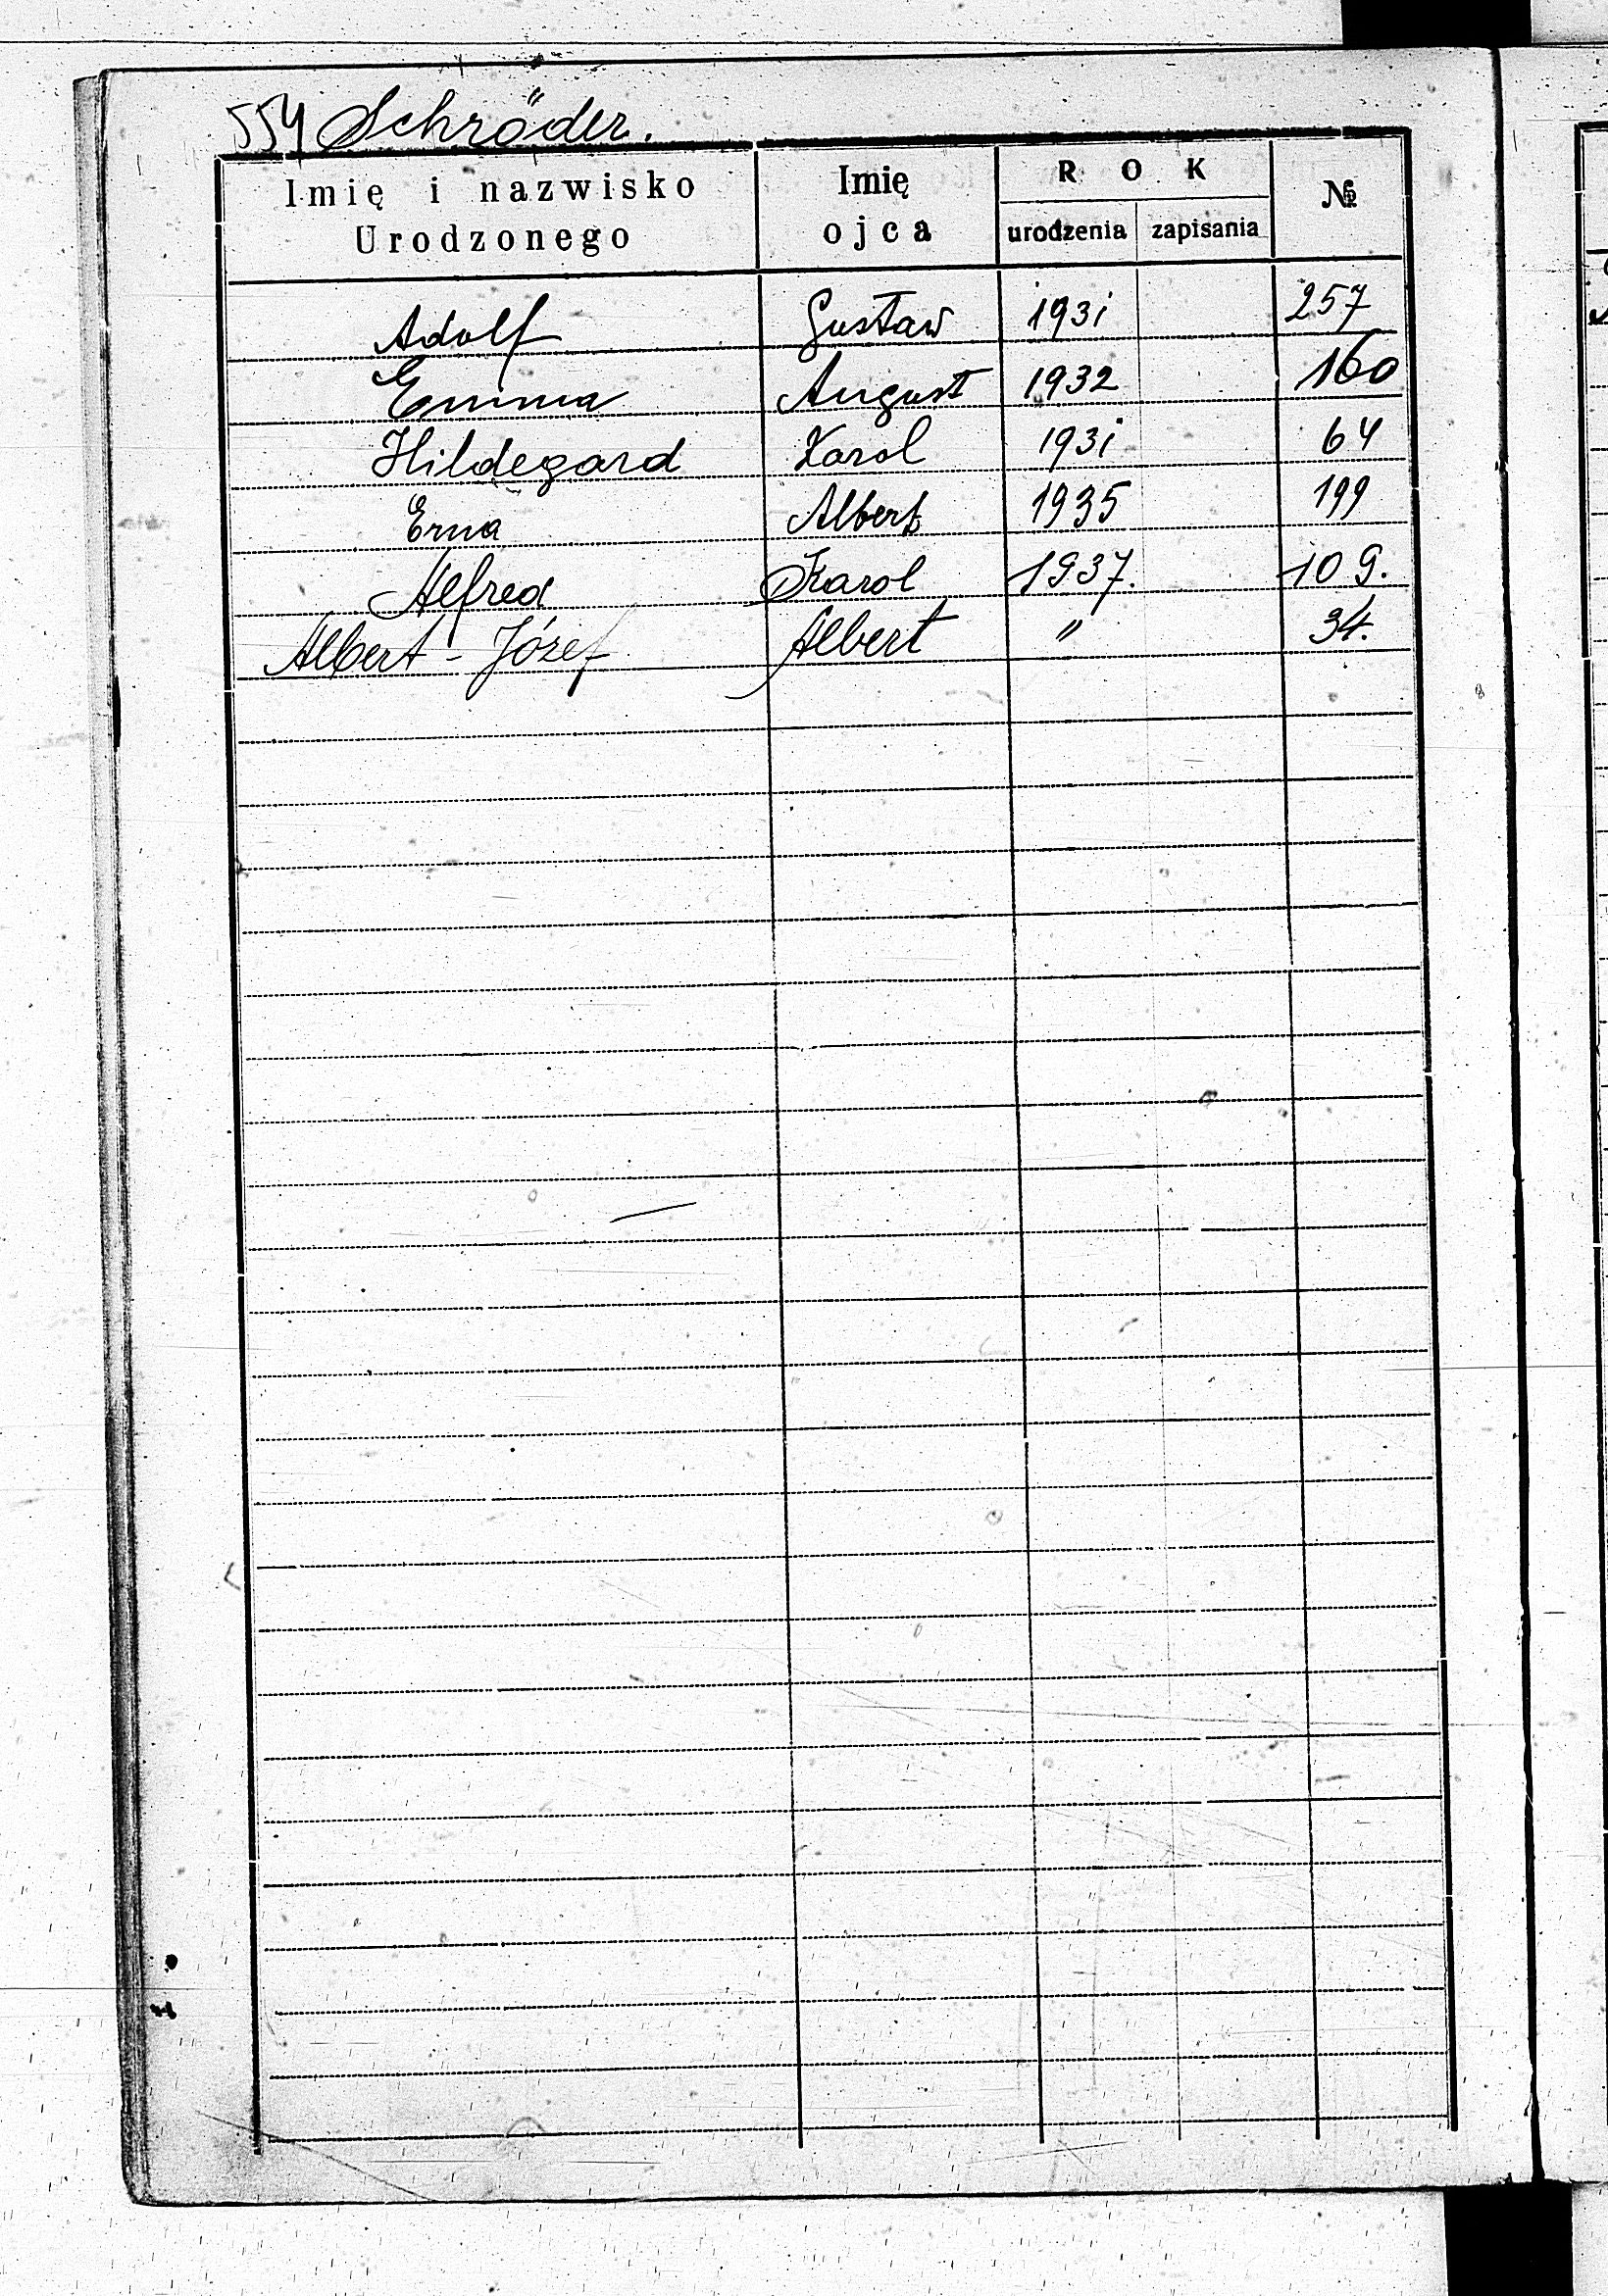 554 Schröder.
Imię i nazwisko Urodzonego Imię ojca ROK urodzenia zapisania №
Adolf Gustaw 1931 257
Emma August 1932 160
Hildegard Karol 1931 64
Erna Albert 1935 199
Alfred Karol 1937. 109.
Albert - Józef Albert " 34.